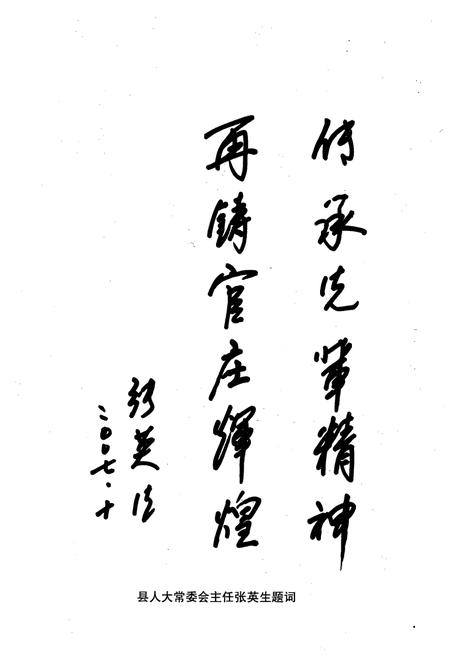 传承先辈精神
再铸官庄辉煌
张英生
二〇〇七·十
县人大常委会主任张英生题词